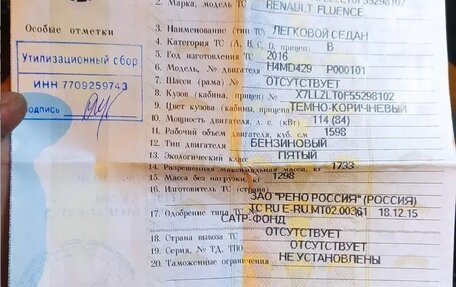 2. Марка, модель ТС RENAULT FLUENCE
Особые отметки
3. Наименование (тип ТС) ЛЕГКОВОЙ СЕДАН
4. Категория ТС (A, B, C, D, прицеп) B
5. Год изготовления ТС 2016
6. Модель, № двигателя H4MD429 P000101
7. Шасси (рама) № ОТСУТСТВУЕТ
8. Кузов (кабина, прицеп) № X7LLZLT0F55298102
9. Цвет кузова (кабины, прицепа) ТЕМНО-КОРИЧНЕВЫЙ
10. Мощность двигателя, л. с. (кВт) 114 (84)
11. Рабочий объем двигателя, куб. см 1598
12. Тип двигателя БЕНЗИНОВЫЙ
13. Экологический класс ПЯТЫЙ
14. Разрешенная максимальная масса, кг 1733
15. Масса без нагрузки, кг 1298
16. Изготовитель ТС (страна)
ЗАО "РЕНО РОССИЯ" (РОССИЯ)
17. Одобрение типа ТС № ТС RU E-RU.MT02.00361 18.12.15
САТР-ФОНД
18. Страна вывоза ТС ОТСУТСТВУЕТ
19. Серия, № ТД, ТПО ОТСУТСТВУЕТ
20. Таможенные ограничения НЕ УСТАНОВЛЕНЫ
Утилизационный сбор
ИНН 7709259743
подпись